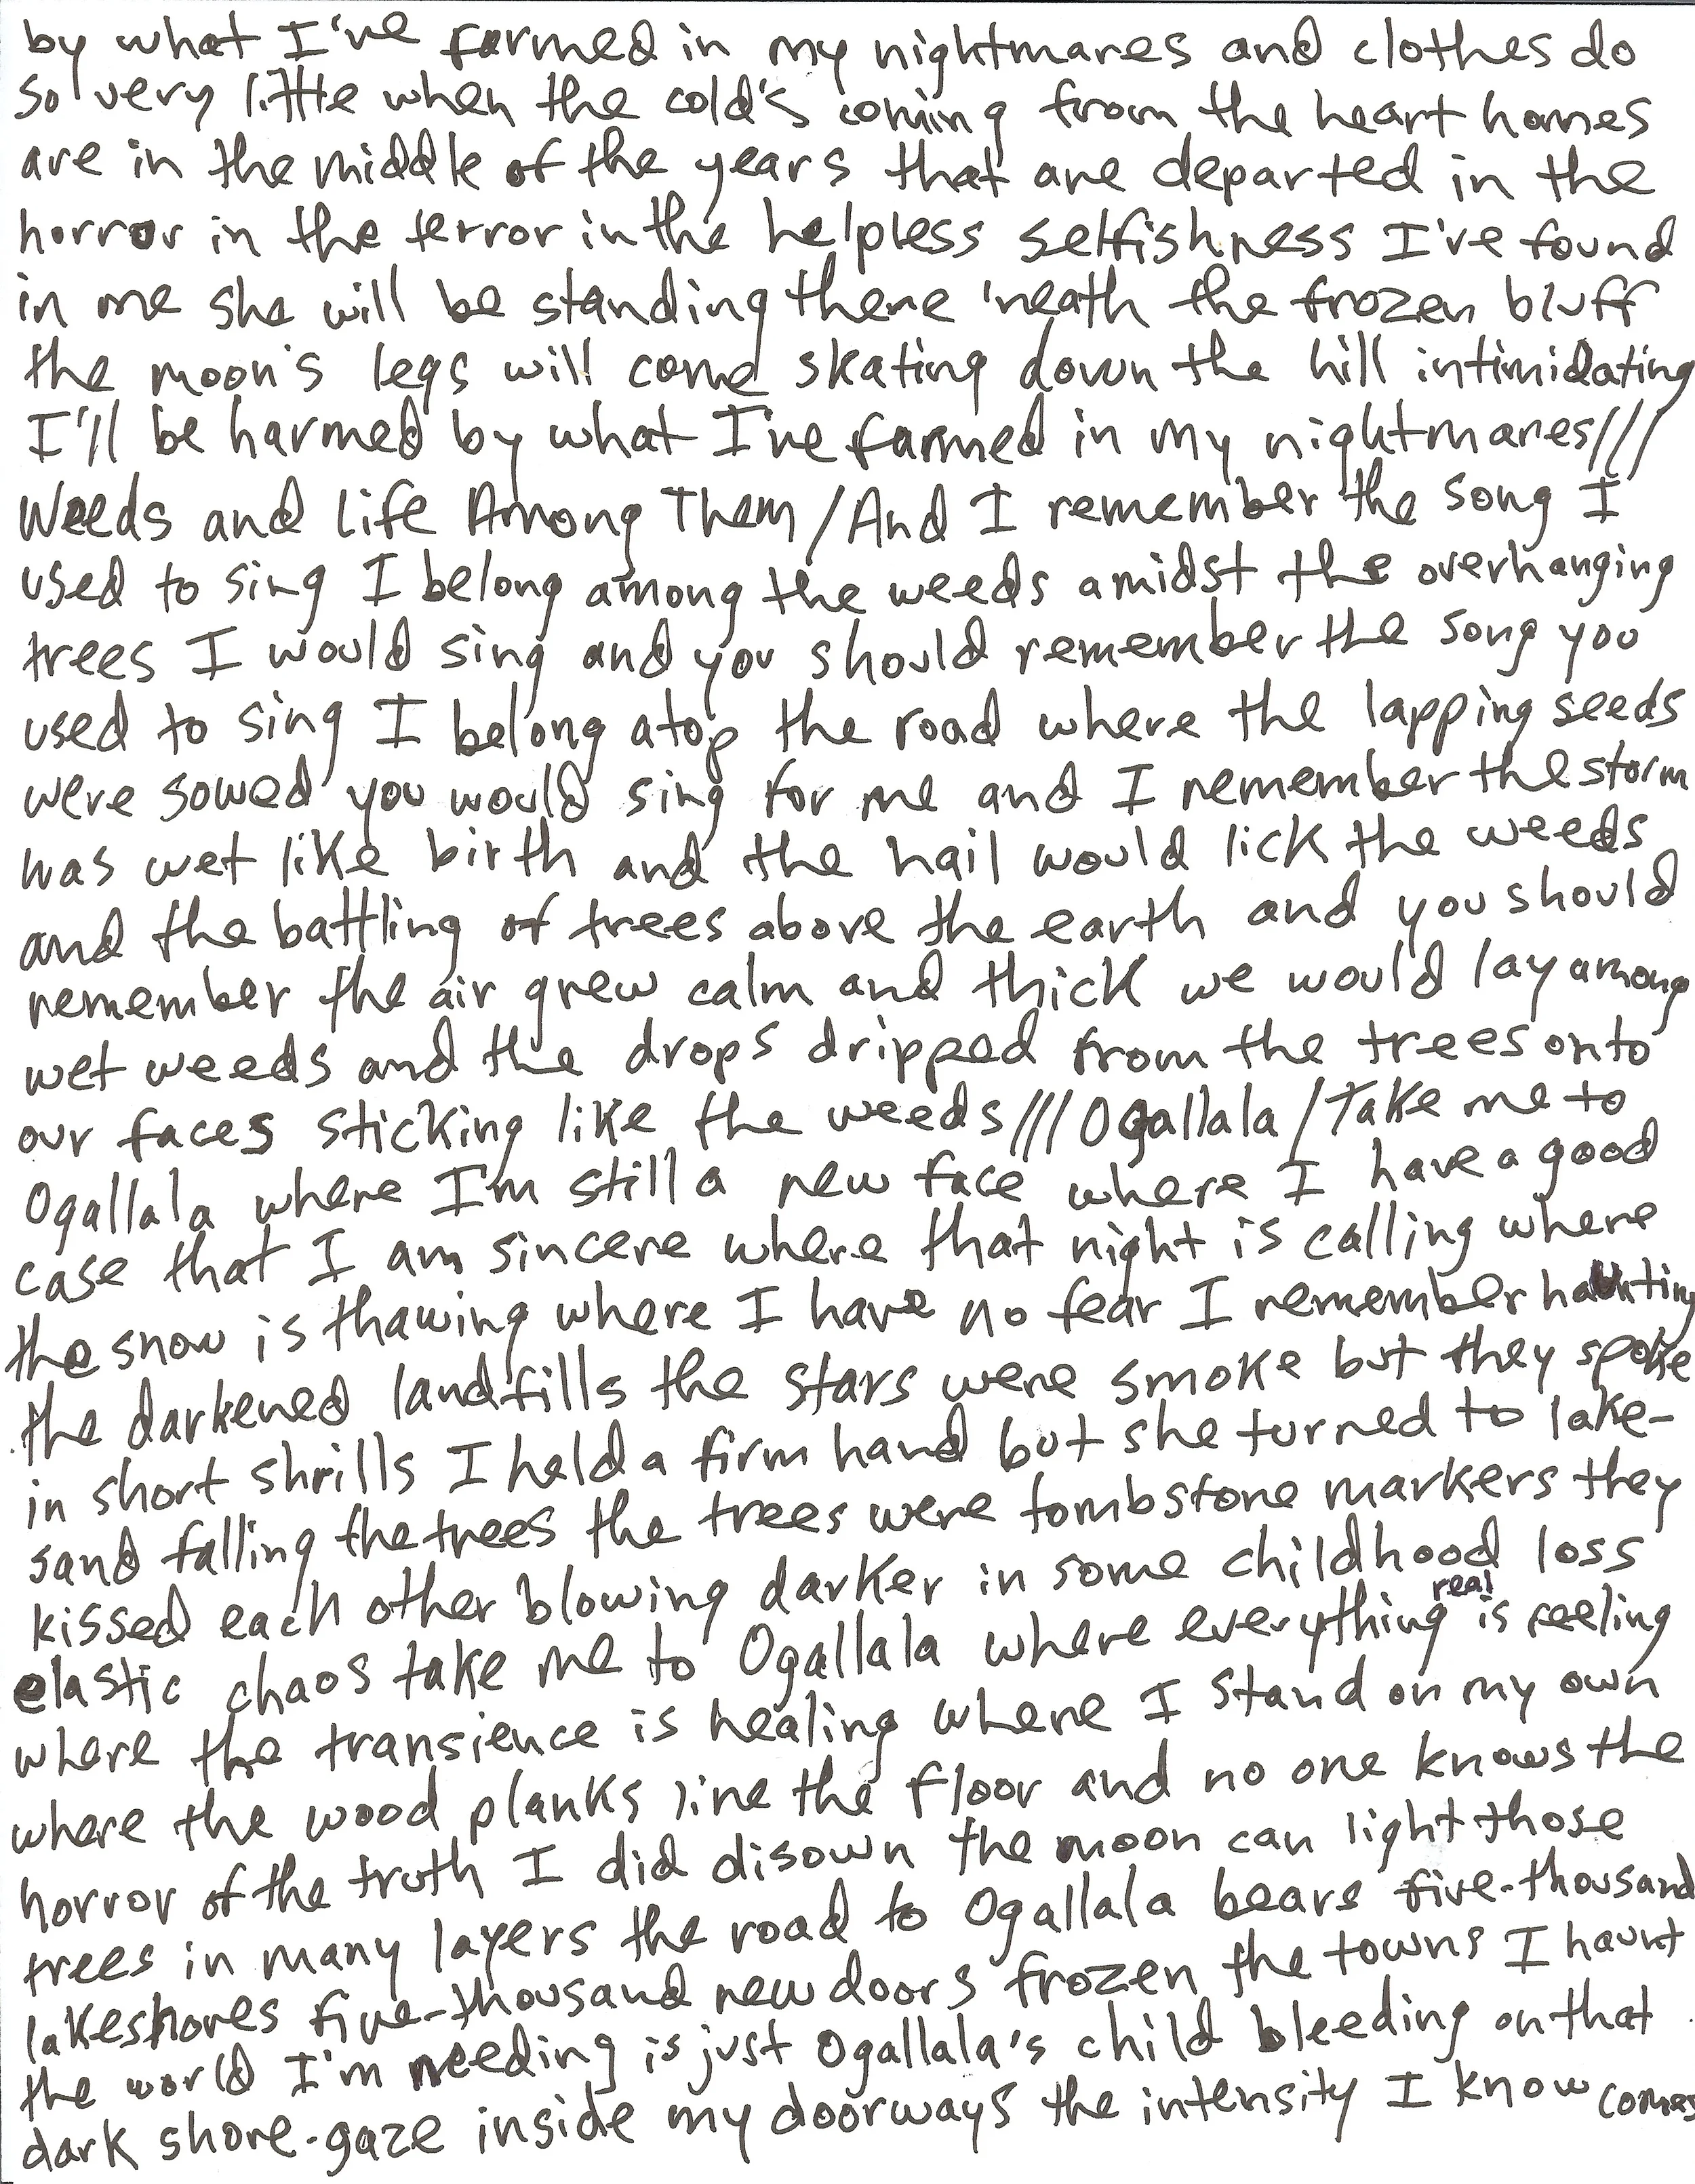 by what I've farmed in my nightmares and clothes do
so very little when the cold's coming from the heart homes
are in the middle of the years that are departed in the
horror in the terror in the helpless selfishness I've found
in me she will be standing there 'neath the frozen bluff
the moon's legs will come skating down the hill intimidating
I'll be harmed by what I've farmed in my nightmares///
Weeds and Life Among Them/And I remember the song I
used to sing I belong among the weeds amidst the overhanging
trees I would sing and you should remember the song you
used to sing I belong atop the road where the lapping seeds
were sowed you would sing for me and I remember the storm
was wet like birth and the hail would lick the weeds
and the battling of trees above the earth and you should
remember the air grew calm and thick we would lay among
wet weeds and the drops dripped from the trees onto
our faces sticking like the weeds///Ogallala/Take me to
Ogallala where I'm still a new face where I have a good
case that I am sincere where that night is calling where
the snow is thawing where I have no fear I remember haunting
the darkened landfills the stars were smoke but they spoke
in short shrills I held a firm hand but she turned to lake-
sand falling the trees the trees were tombstone markers they
kissed each other blowing darker in some childhood loss
elastic chaos take me to Ogallala where everything real is feeling
where the transience is healing where I stand on my own
where the wood planks line the floor and no one knows the
horror of the truth I did disown the moon can light those
trees in many layers the road to Ogallala bears five-thousand
lakeshores five-thousand new doors frozen the towns I haunt
the world I'm needing is just Ogallala's child bleeding on that
dark shore-gaze inside my doorways the intensity I know comes